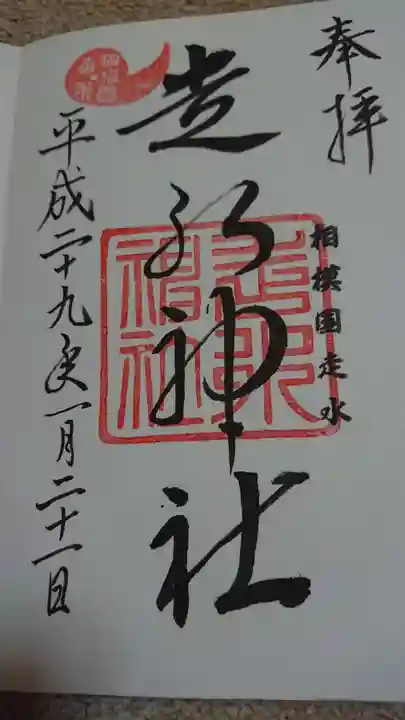 奉拝
相模国走水
走水神社
平成二十九年一月二十一日